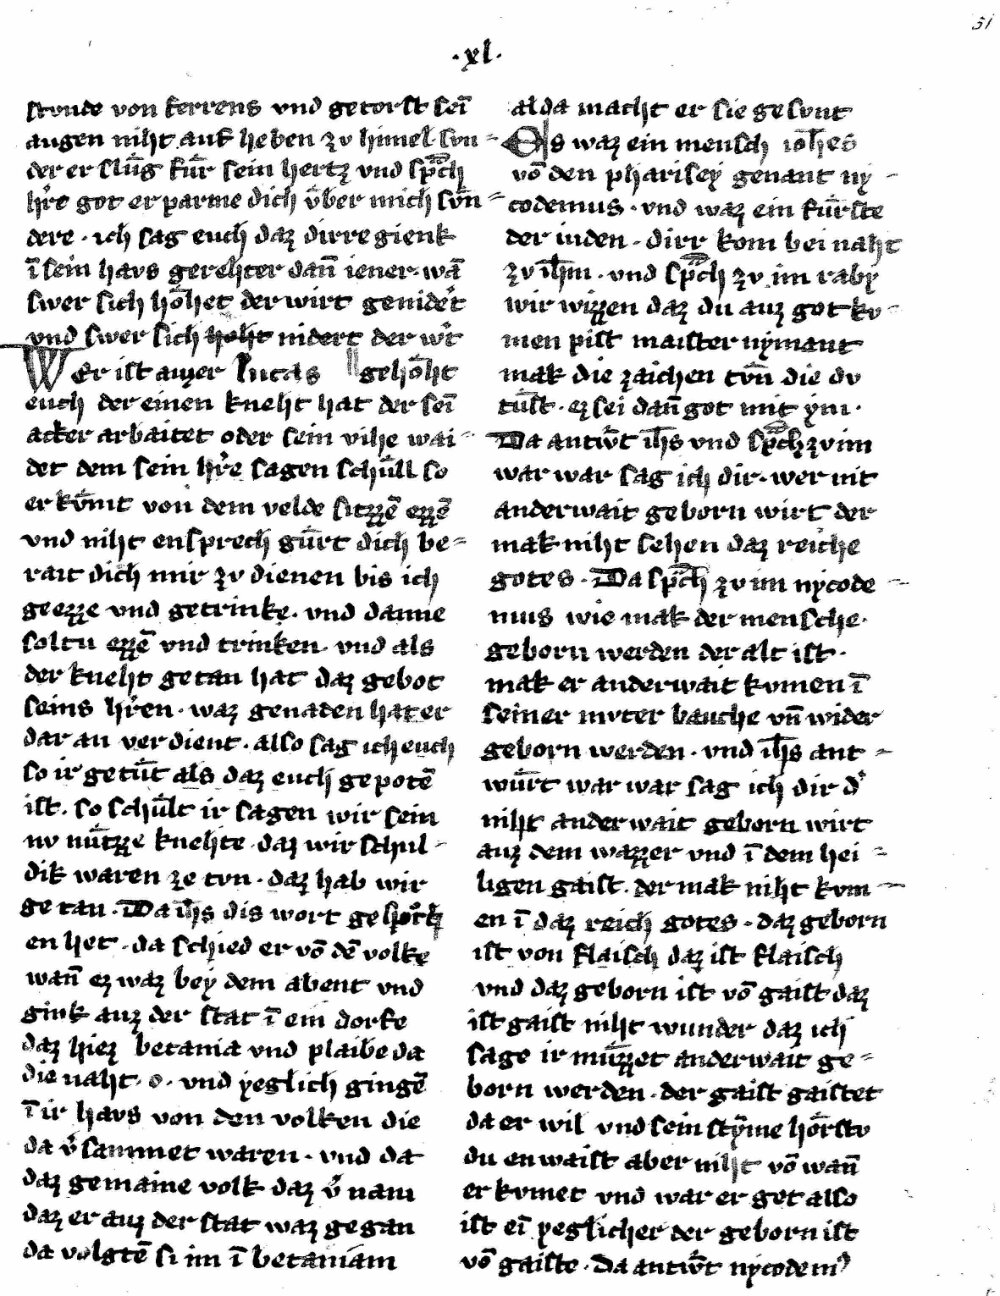 51
·xl·
stvnde von ferrens vnd getorst sei̅
augen niht auf heben zv himel svn-
der er slůg fůr sein hertz vnd sp̅ch
hr̉e got er parme dich v̊ber mich svn-
dere · ich sag euch daz dirre gienk
i̅ sein havs gerehter dan̅ iener · wa̅
swer sich hőhet der wirt genidet
vnd swer sich hoht nidert der w̉t
Wer ist auzer Lucas gehőht
euch der einen kneht hat der sei̅
acker arbaitet oder sein vihe wai-
det dem sein hr̉e sagen schůll so
er kv̊mt von dem velde sitzze̅ ezze̅
vnd niht ensprech gůrt dich be-
rait dich mir zv dienen bis ich
geezze vnd getrinke · vnd danne
soltu ezze̅ vnd trinken · vnd als
der kneht getan hat daz gebot
seins hr̉en · waz genaden hat er
dar an verdient · also sag ich euch
so ir getůt als daz euch gepote̅
ist · so schůlt ir sagen wir sein
nv nůtzze knehte · daz wir schul-
dik waren ze tvn · daz hab wir
getan · Da ih̅s dis wort gesproch
en het · da schied er vo̅ de̅ volke
wan̅ ez waz bey dem abent vnd
gink auz der stat i̅ ein dorfe
daz hiez betania vnd plaibe da
die naht · o · vnd yeglich ginge̅
i̅ ir havs von den volken die
da v̉sammet waren · vnd da
daz gemaine volk daz v̉nam
daz er auz der stat waz gegan
da volgte̅ si im i̅ betaniam
alda macht er sie gesvnt
Es waz ein mensch ioh̅es
vo̅ den pharisey genant ny-
codemus · vnd waz ein fůrste
der iuden · dirr kom bei naht
zv ih̅m · vnd sp̅ch zv im raby
wir wizzen daz du auz got ko-
men pist maister nymant
mak die zaichen tvn̅ die dv
tůst · ez sei dan̅ got mit ym ·
Da antw̉t ih̅s vnd sp̅ch zv im
war war sag ich dir · wer nit
anderwait geborn wirt der
mak niht sehen daz reiche
gotes · Da sp̅ch zv im nycode-
mus wie mak der mensche ·
geborn werden der alt ist ·
mak er anderwait kvmen i̅
seiner mvter bauche vn̅ wider
geborn werden · vnd ih̅s ant-
wůrt war war sag ich dir d̉
niht anderwait geborn wirt
auz dem wazzer vnd i̅ dem hei-
ligen gaist · der mak niht kvm-
en i̅ daz reich gotes · daz geborn
ist von flaisch daz ist flaisch
vnd daz geborn ist vo̅ gaist daz
ist gaist niht wunder daz ich
sage ir můzzet anderwait ge-
born werden · der gaist gaistet
da er wil vnd sein sty̅me hőrstv
du enwaist aber niht vo̅ wan̅
er kvmet vnd war er get also
ist ei̅ yeglicher der geborn ist
vo̅ gaiste · Da antw̉t nycodem᾽